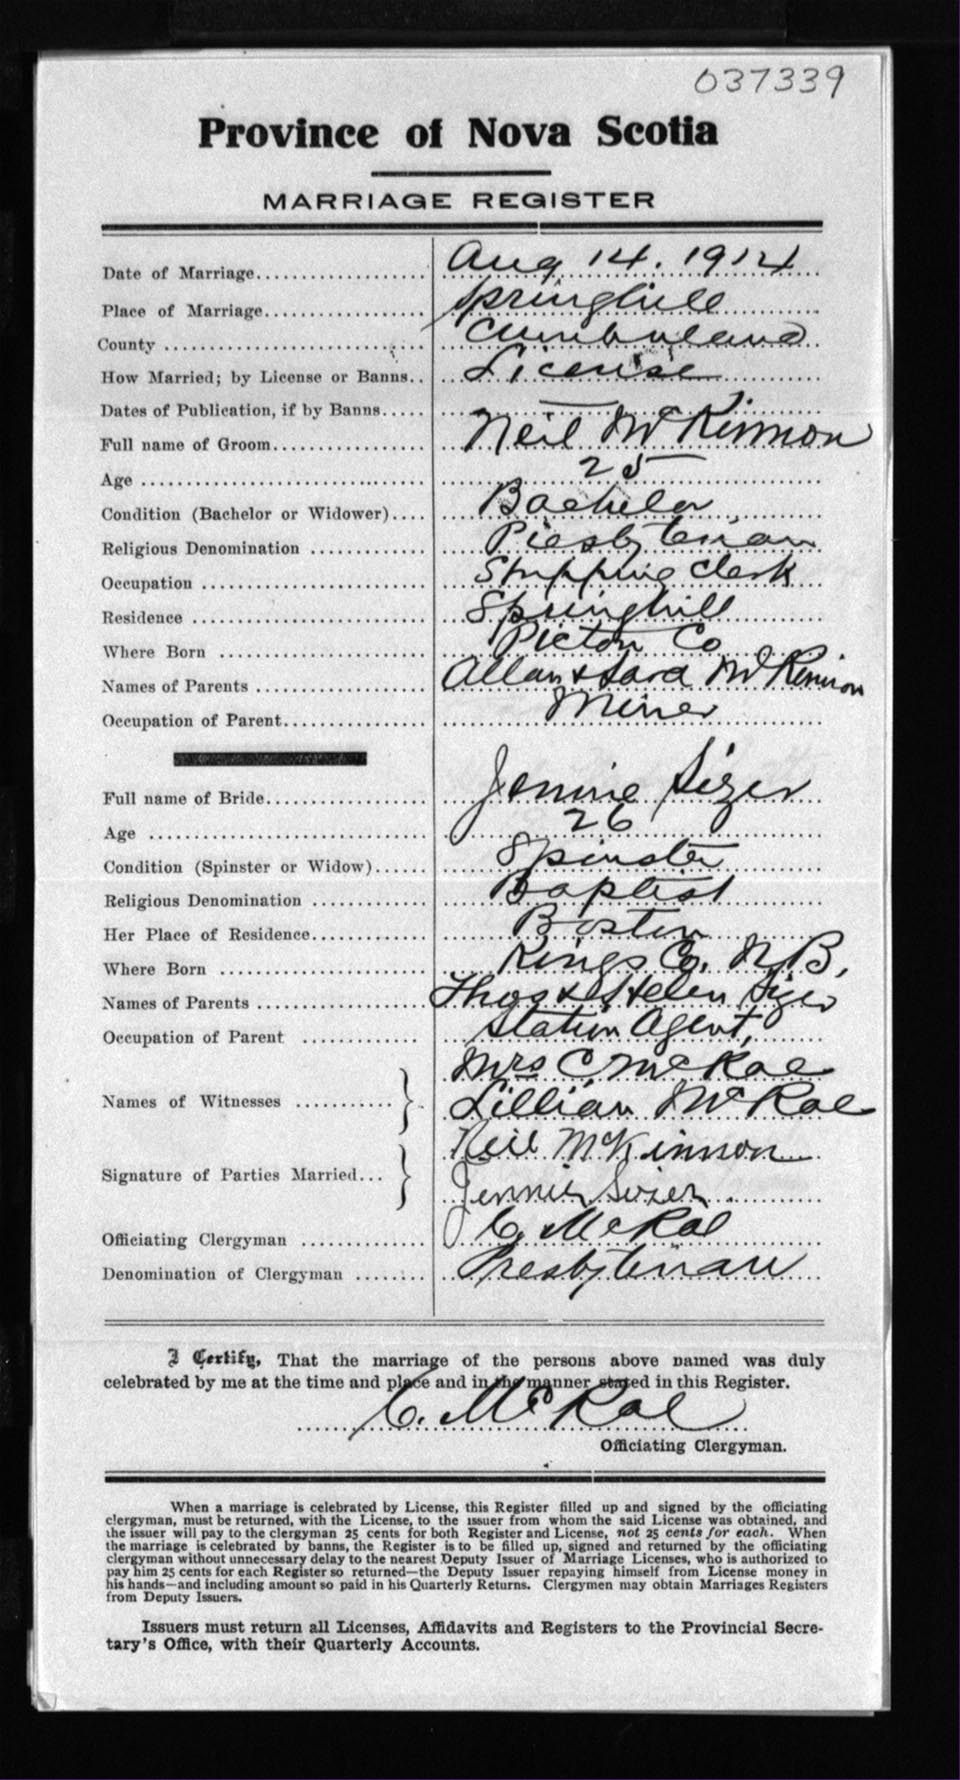 037339
Province of Nova Scotia
MARRIAGE REGISTER
Date of Marriage.................. Aug 14. 1914
Place of Marriage.................. Springhill
County .................. Cumberland
How Married; by License or Banns.. License
Dates of Publication, if by Banns.....
Full name of Groom.................. Neil McKinnon
Age .................. 25
Condition (Bachelor or Widower).... Bachelor
Religious Denomination ............ Presbyterian
Occupation .................. Shipping Clerk
Residence .................. Springhill
Where Born .................. Pictou Co
Names of Parents .................. Allan & Sara McKinnon
Occupation of Parent.................. Miner
Full name of Bride.................. Jennie Sizer
Age .................. 26
Condition (Spinster or Widow)...... Spinster
Religious Denomination ............ Baptist
Her Place of Residence............ Boston
Where Born .................. Kings Co. N.B.
Names of Parents .................. Thos & Helen Sizer
Occupation of Parent ............ Station Agent,
Mrs C. McRae
Names of Witnesses ............ Lillian McRae
Neil McKinnon
Signature of Parties Married... Jennie Sizer
Officiating Clergyman ............ C. McRae
Denomination of Clergyman ........ Presbyterian
I Certify, That the marriage of the persons above named was duly
celebrated by me at the time and place and in the manner stated in this Register.
C. McRae
Officiating Clergyman.
When a marriage is celebrated by License, this Register filled up and signed by the officiating
clergyman, must be returned, with the License, to the issuer from whom the said License was obtained, and
the issuer will pay to the clergyman 25 cents for both Register and License, not 25 cents for each. When
the marriage is celebrated by banns, the Register is to be filled up, signed and returned by the officiating
clergyman without unnecessary delay to the nearest Deputy Issuer of Marriage Licenses, who is authorized to
pay him 25 cents for each Register so returned—the Deputy Issuer repaying himself from License money in
his hands—and including amount so paid in his Quarterly Returns. Clergymen may obtain Marriages Registers
from Deputy Issuers.
Issuers must return all Licenses, Affidavits and Registers to the Provincial Secre-
tary's Office, with their Quarterly Accounts.